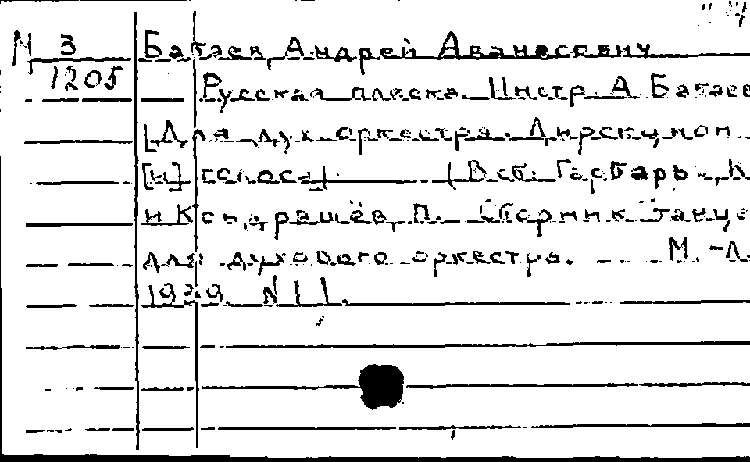 М 3
1205
Багаев, Андрей Аванесович
Русская пляска. Инстр. А. Багаев
[Для дух. оркестра. Дирекцион
[и] голоса] (В сб: Гарбарь,
и Кондрашёв, П. Сборник танце
для духового оркестра. М.-Л.
1939. N 11.